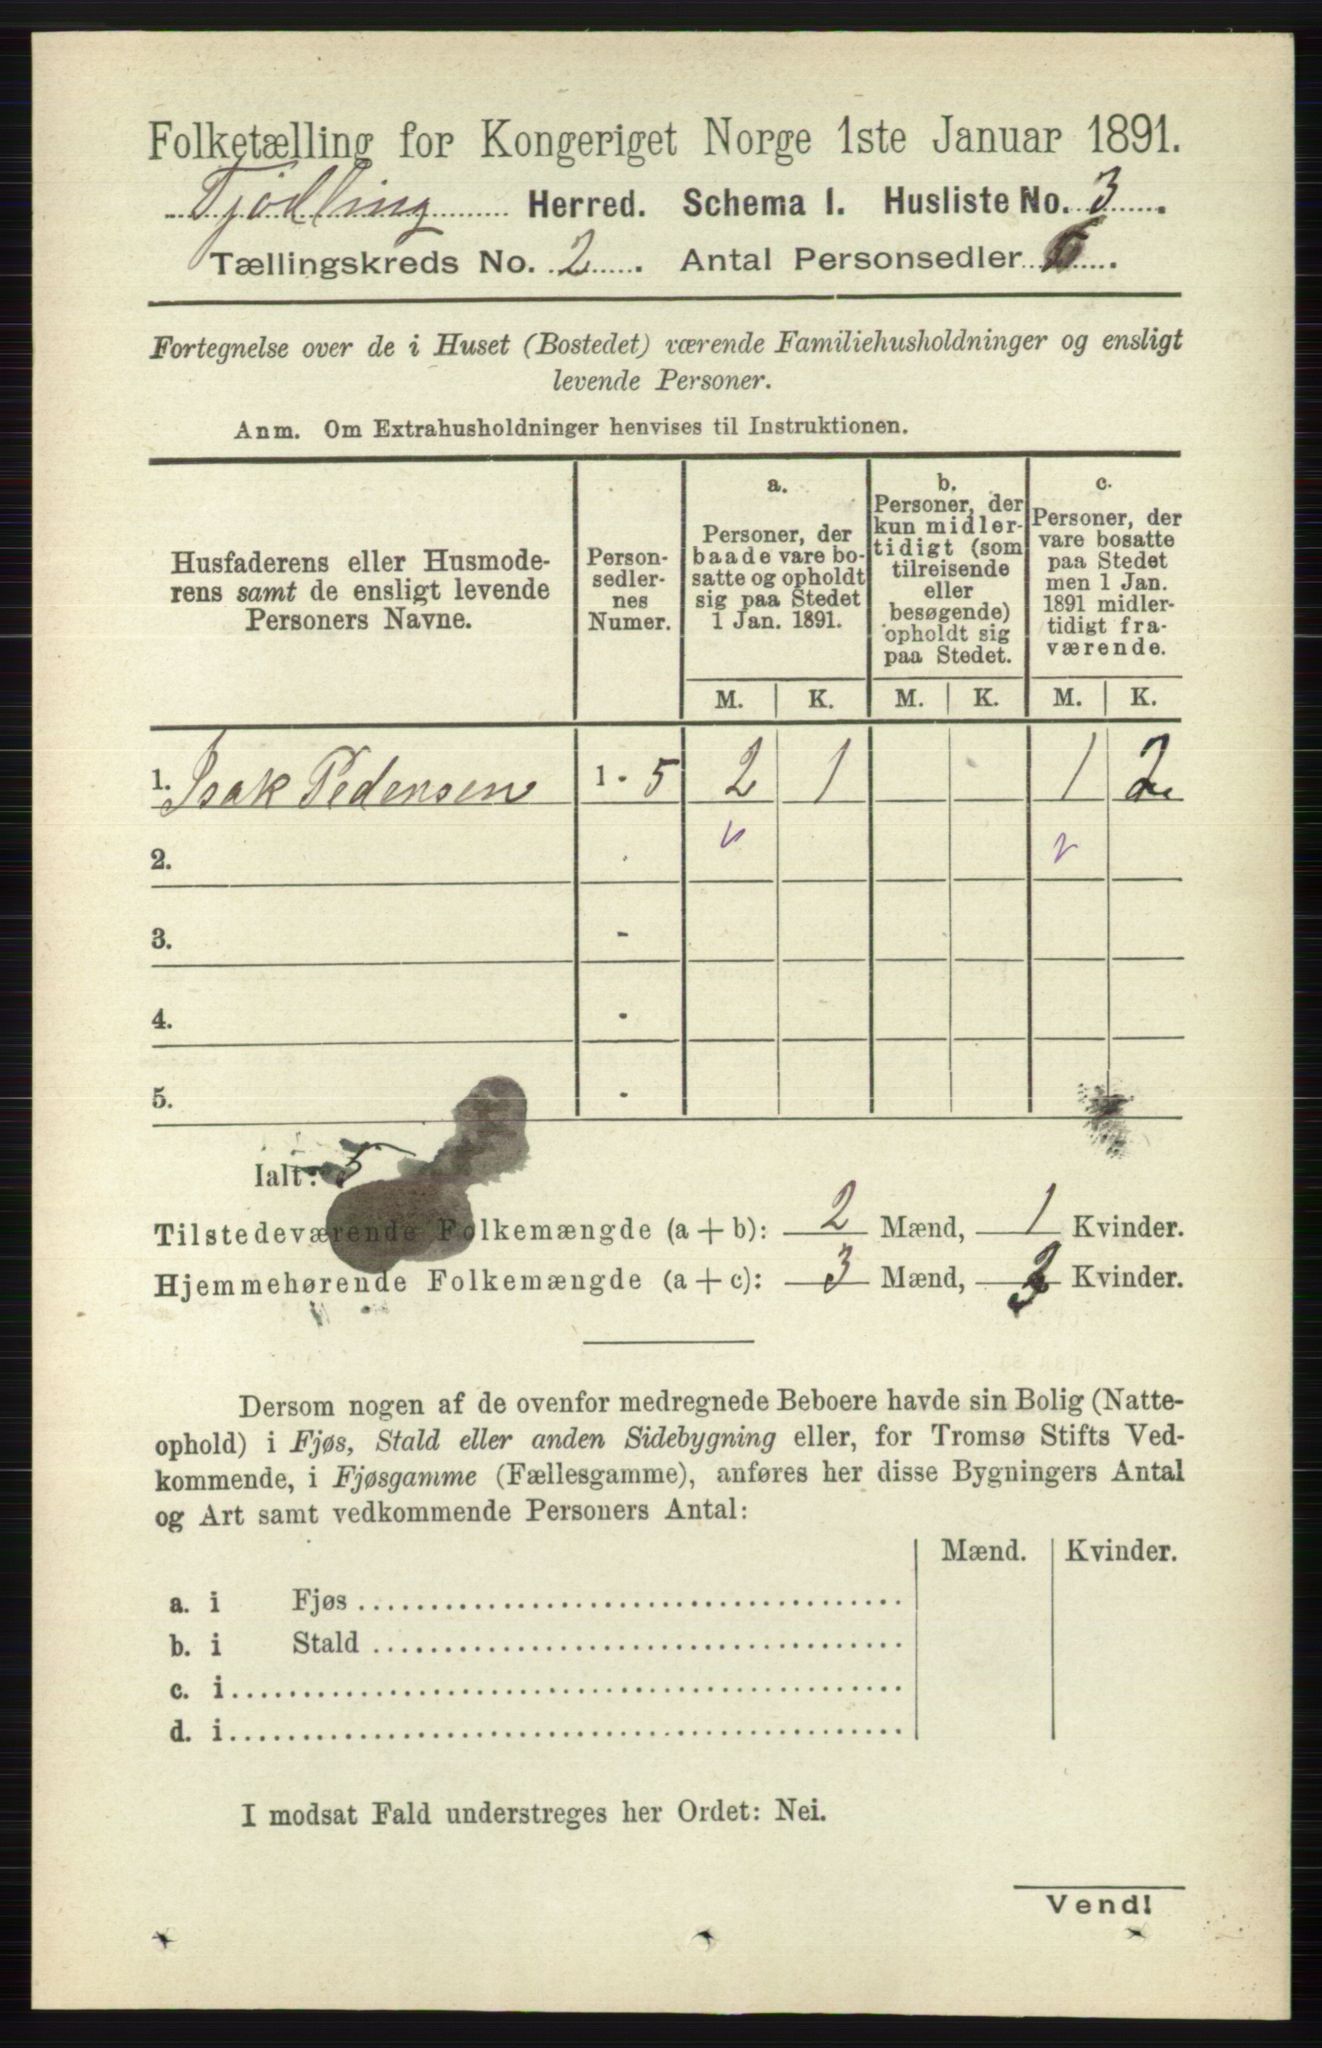 Folketælling for Kongeriget Norge 1ste Januar 1891.
Tjødling Herred. Schema I. Husliste No. 3.
Tællingskreds No. 2. Antal Personsedler
Fortegnelse over de i Huset (Bostedet) værende Familiehusholdninger og ensligt
levende Personer.
Anm. Om Extrahusholdninger henvises til Instruktionen.
Husfaderens eller Husmode-
rens samt de ensligt levende
Personers Navne.
Person-
sedler-
nes
Numer.
a.
Personer, der
baade vare bo-
satte og opholdt
sig paa Stedet
1 Jan. 1891.
b.
Personer, der
kun midler-
tidigt (som
tilreisende
eller
besøgende)
opholdt sig
paa Stedet.
c.
Personer, der
vare bosatte
paa Stedet
men 1 Jan.
1891 midler-
tidigt fra-
værende.
M. K. M. K. M. K.
1. Isak Pedersen 1 - 5 2 1 1 2
2.
3. -
4. -
5. -
Ialt: 5
Tilstedeværende Folkemængde (a + b): 2 Mænd, 1 Kvinder.
Hjemmehørende Folkemængde (a + c): 3 Mænd, Kvinder.
Dersom nogen af de ovenfor medregnede Beboere havde sin Bolig (Natte-
ophold) i Fjøs, Stald eller anden Sidebygning eller, for Tromsø Stifts Ved-
kommende, i Fjøsgamme (Fællesgamme), anføres her disse Bygningers Antal
og Art samt vedkommende Personers Antal:
Mænd. Kvinder.
a. i Fjøs
b. i Stald
c. i
d. i
I modsat Fald understreges her Ordet: Nei.
Vend!